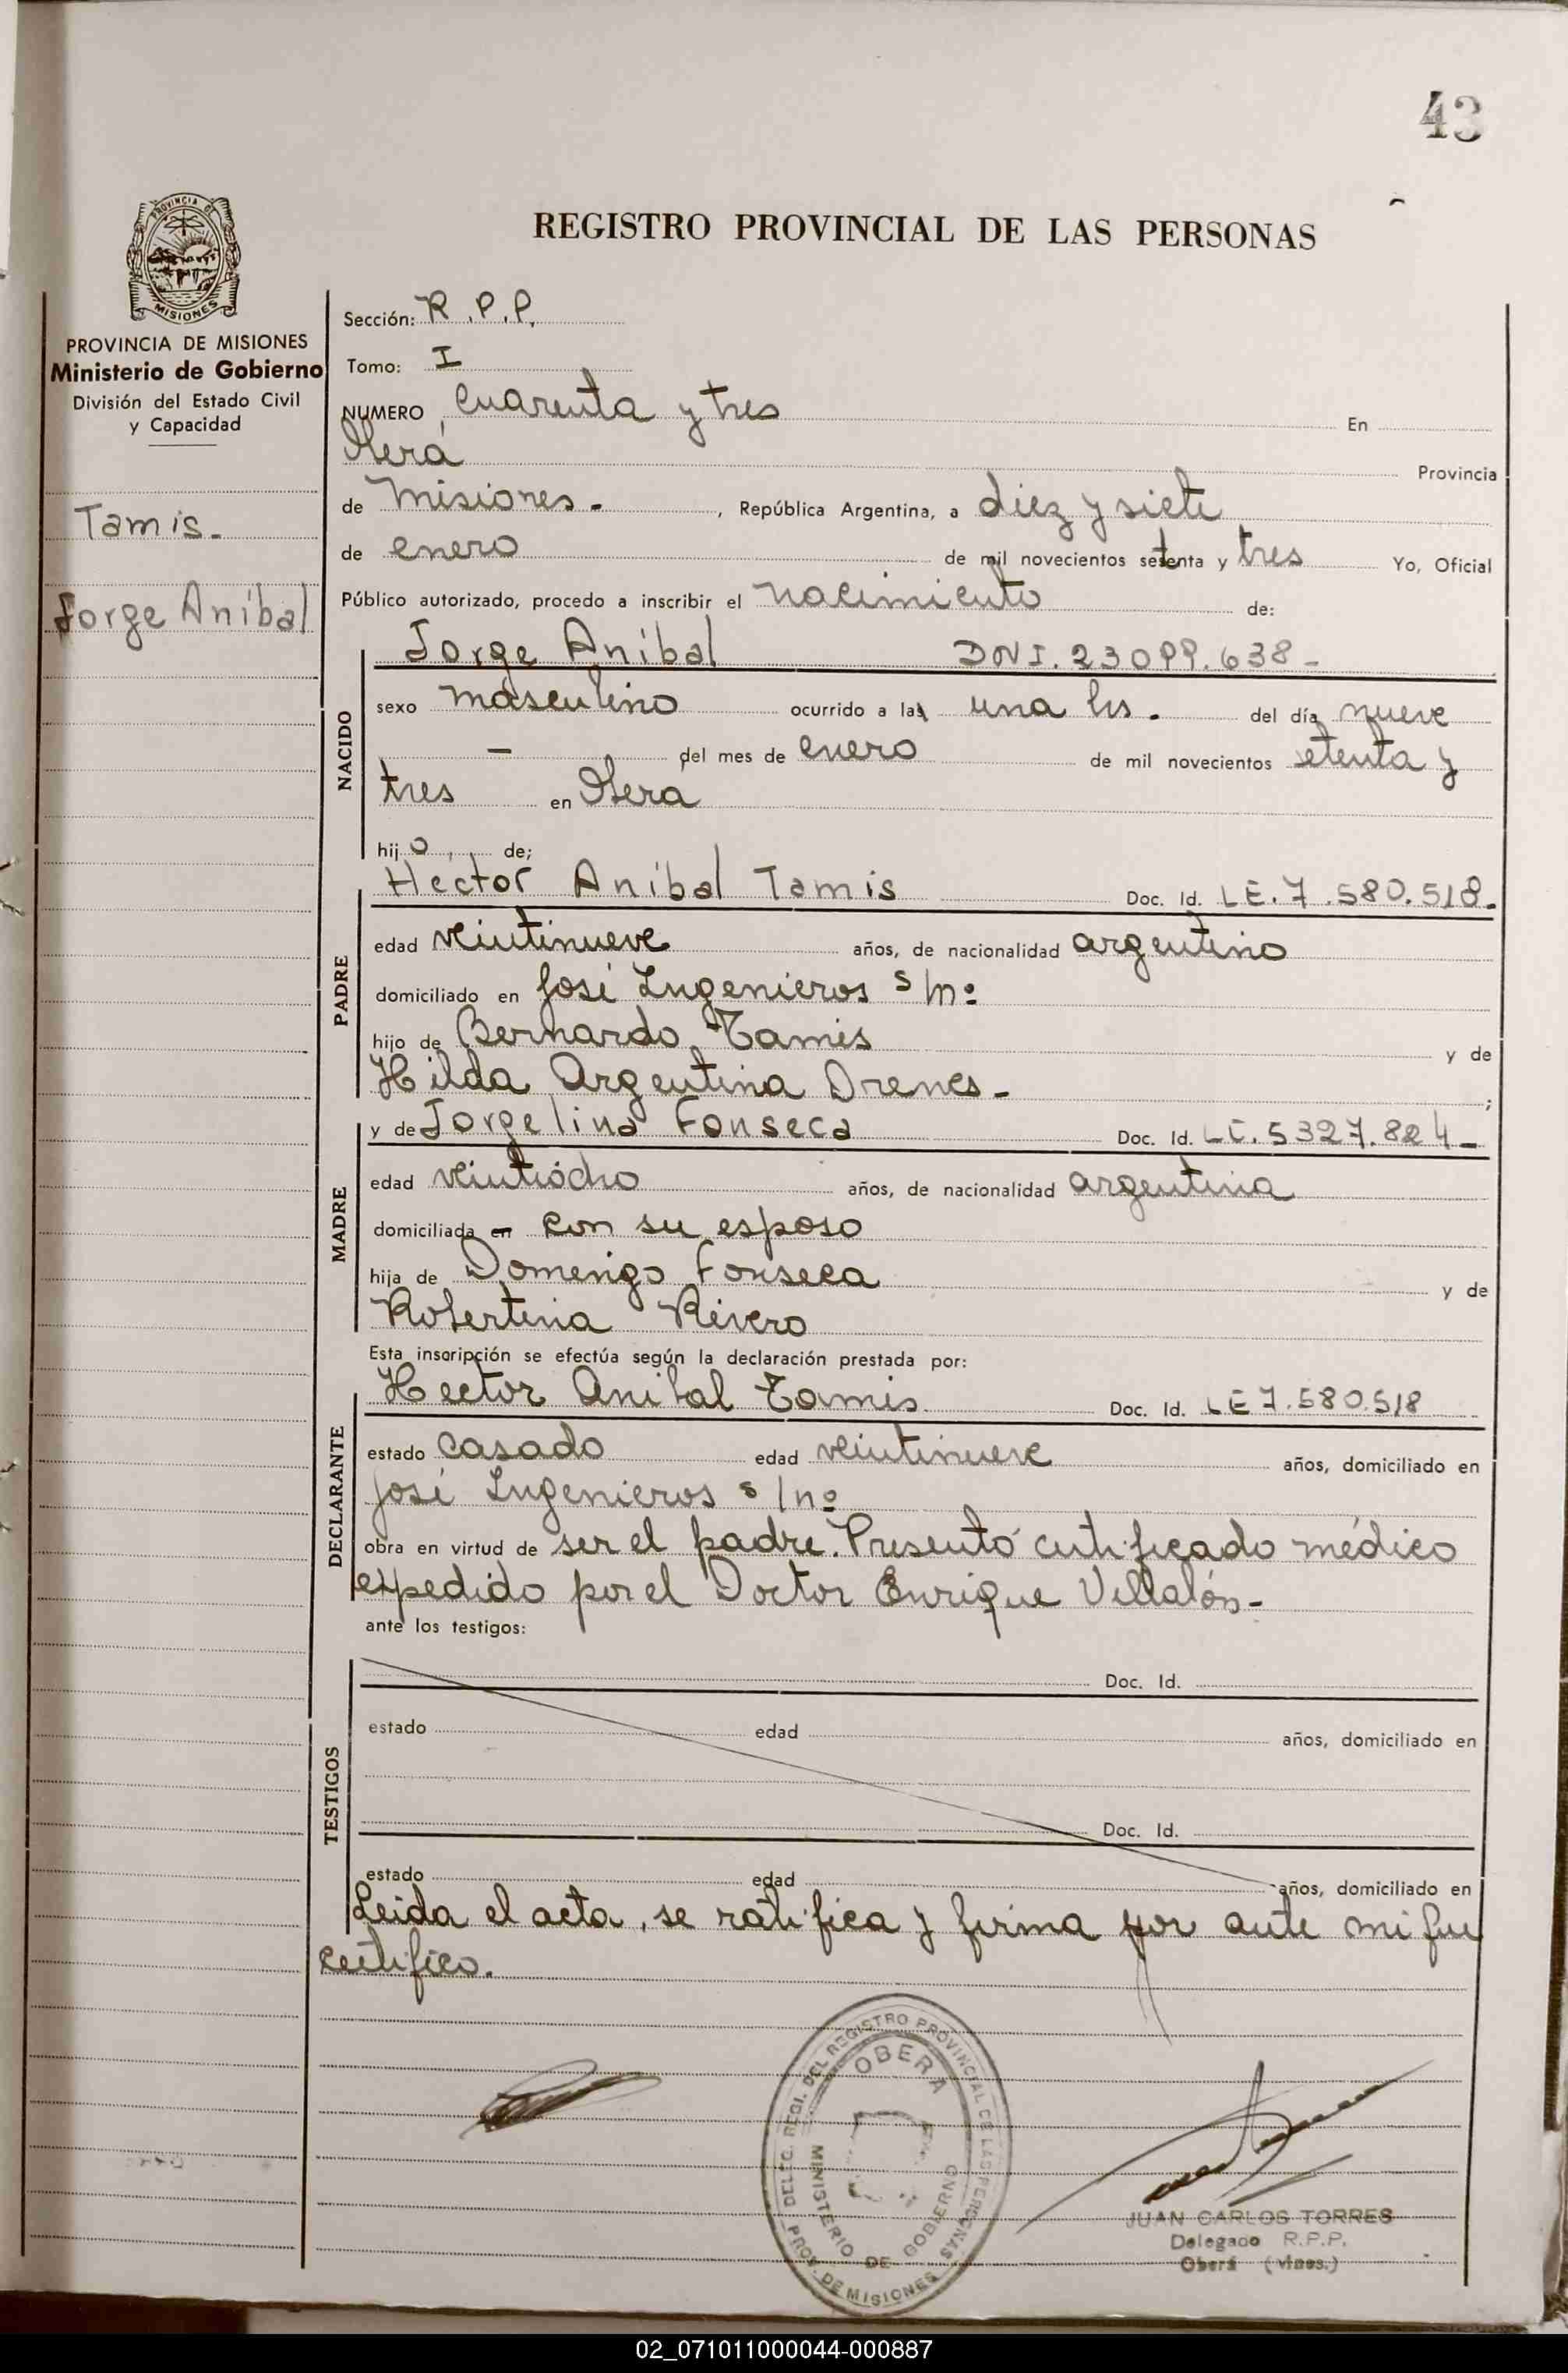 43
REGISTRO PROVINCIAL DE LAS PERSONAS
PROVINCIA DE
MISIONES
PROVINCIA DE MISIONES
Ministerio de Gobierno
División del Estado Civil
y Capacidad
Tamis.-
Jorge Aníbal
Sección: R.P.P.
Tomo: I
NUMERO cuarenta y tres En
Oberá Provincia
de Misiones.- , República Argentina, a diez y siete
de enero de mil novecientos setenta y tres Yo, Oficial
Público autorizado, procedo a inscribir el nacimiento de:
Jorge Aníbal DNI. 23099.638-
NACIDO
sexo masculino ocurrido a las una hs. del día nueve
— del mes de enero de mil novecientos etenta y
tres en Obera
hijo de;
Héctor Aníbal Tamis Doc. Id. LE. 7.580.518.
PADRE
edad veintinueve años, de nacionalidad argentino
domiciliado en José Ingenieros s/nº
hijo de Bernardo Tamis y de
Hilda Argentina Drenes- ;
y de Jorgelina Fonseca Doc. Id. LC. 5327.824-
MADRE
edad veintiocho años, de nacionalidad argentina
domiciliada en con su esposo
hija de Domingo Fonseca y de
Robertina Rivero
Esta inscripción se efectúa según la declaración prestada por:
Hector Anibal Tamis. Doc. Id. LE 7.580.518
DECLARANTE
estado casado edad veintinueve años, domiciliado en
José Ingenieros s/nº
obra en virtud de ser el padre. Presentó certificado médico
expedido por el Doctor Enrique Villalón-
ante los testigos:
Doc. Id.
TESTIGOS
estado edad años, domiciliado en
Doc. Id.
estado edad años, domiciliado en
Leida el acta, se ratifica y firma por ante mi que
certifico.
DELEG. REGI. DEL REGISTRO PROVINCIAL DE LAS PERSONAS
OBERA
MINISTERIO DE GOBIERNO
PROV. DE MISIONES
JUAN CARLOS TORRES
Delegado R.P.P.
Oberá (Mnes.)
02_071011000044-000887